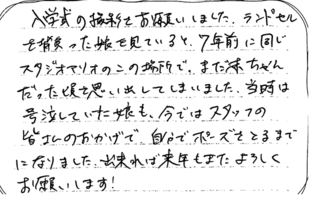 入学式の撮影でお願いしました。ランドセル
を背負った娘を見ていると、7年前に同じ
スタジオマリオのこの場所で、まだ赤ちゃん
だった頃を思い出してしまいました。当時は
号泣していた娘も、今ではスタッフの
皆さんのおかげで、自分でポーズをとるまで
になりました。出来れば来年もまたよろしく
お願いします!